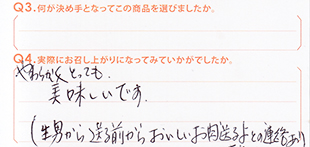 Q3.何が決め手となってこの商品を選びましたか。
Q4.実際にお召し上がりになってみていかがでしたか。
やわらかくとっても
美味しいです.
(生男から送る前からおいしいお肉送るよとの連絡あり